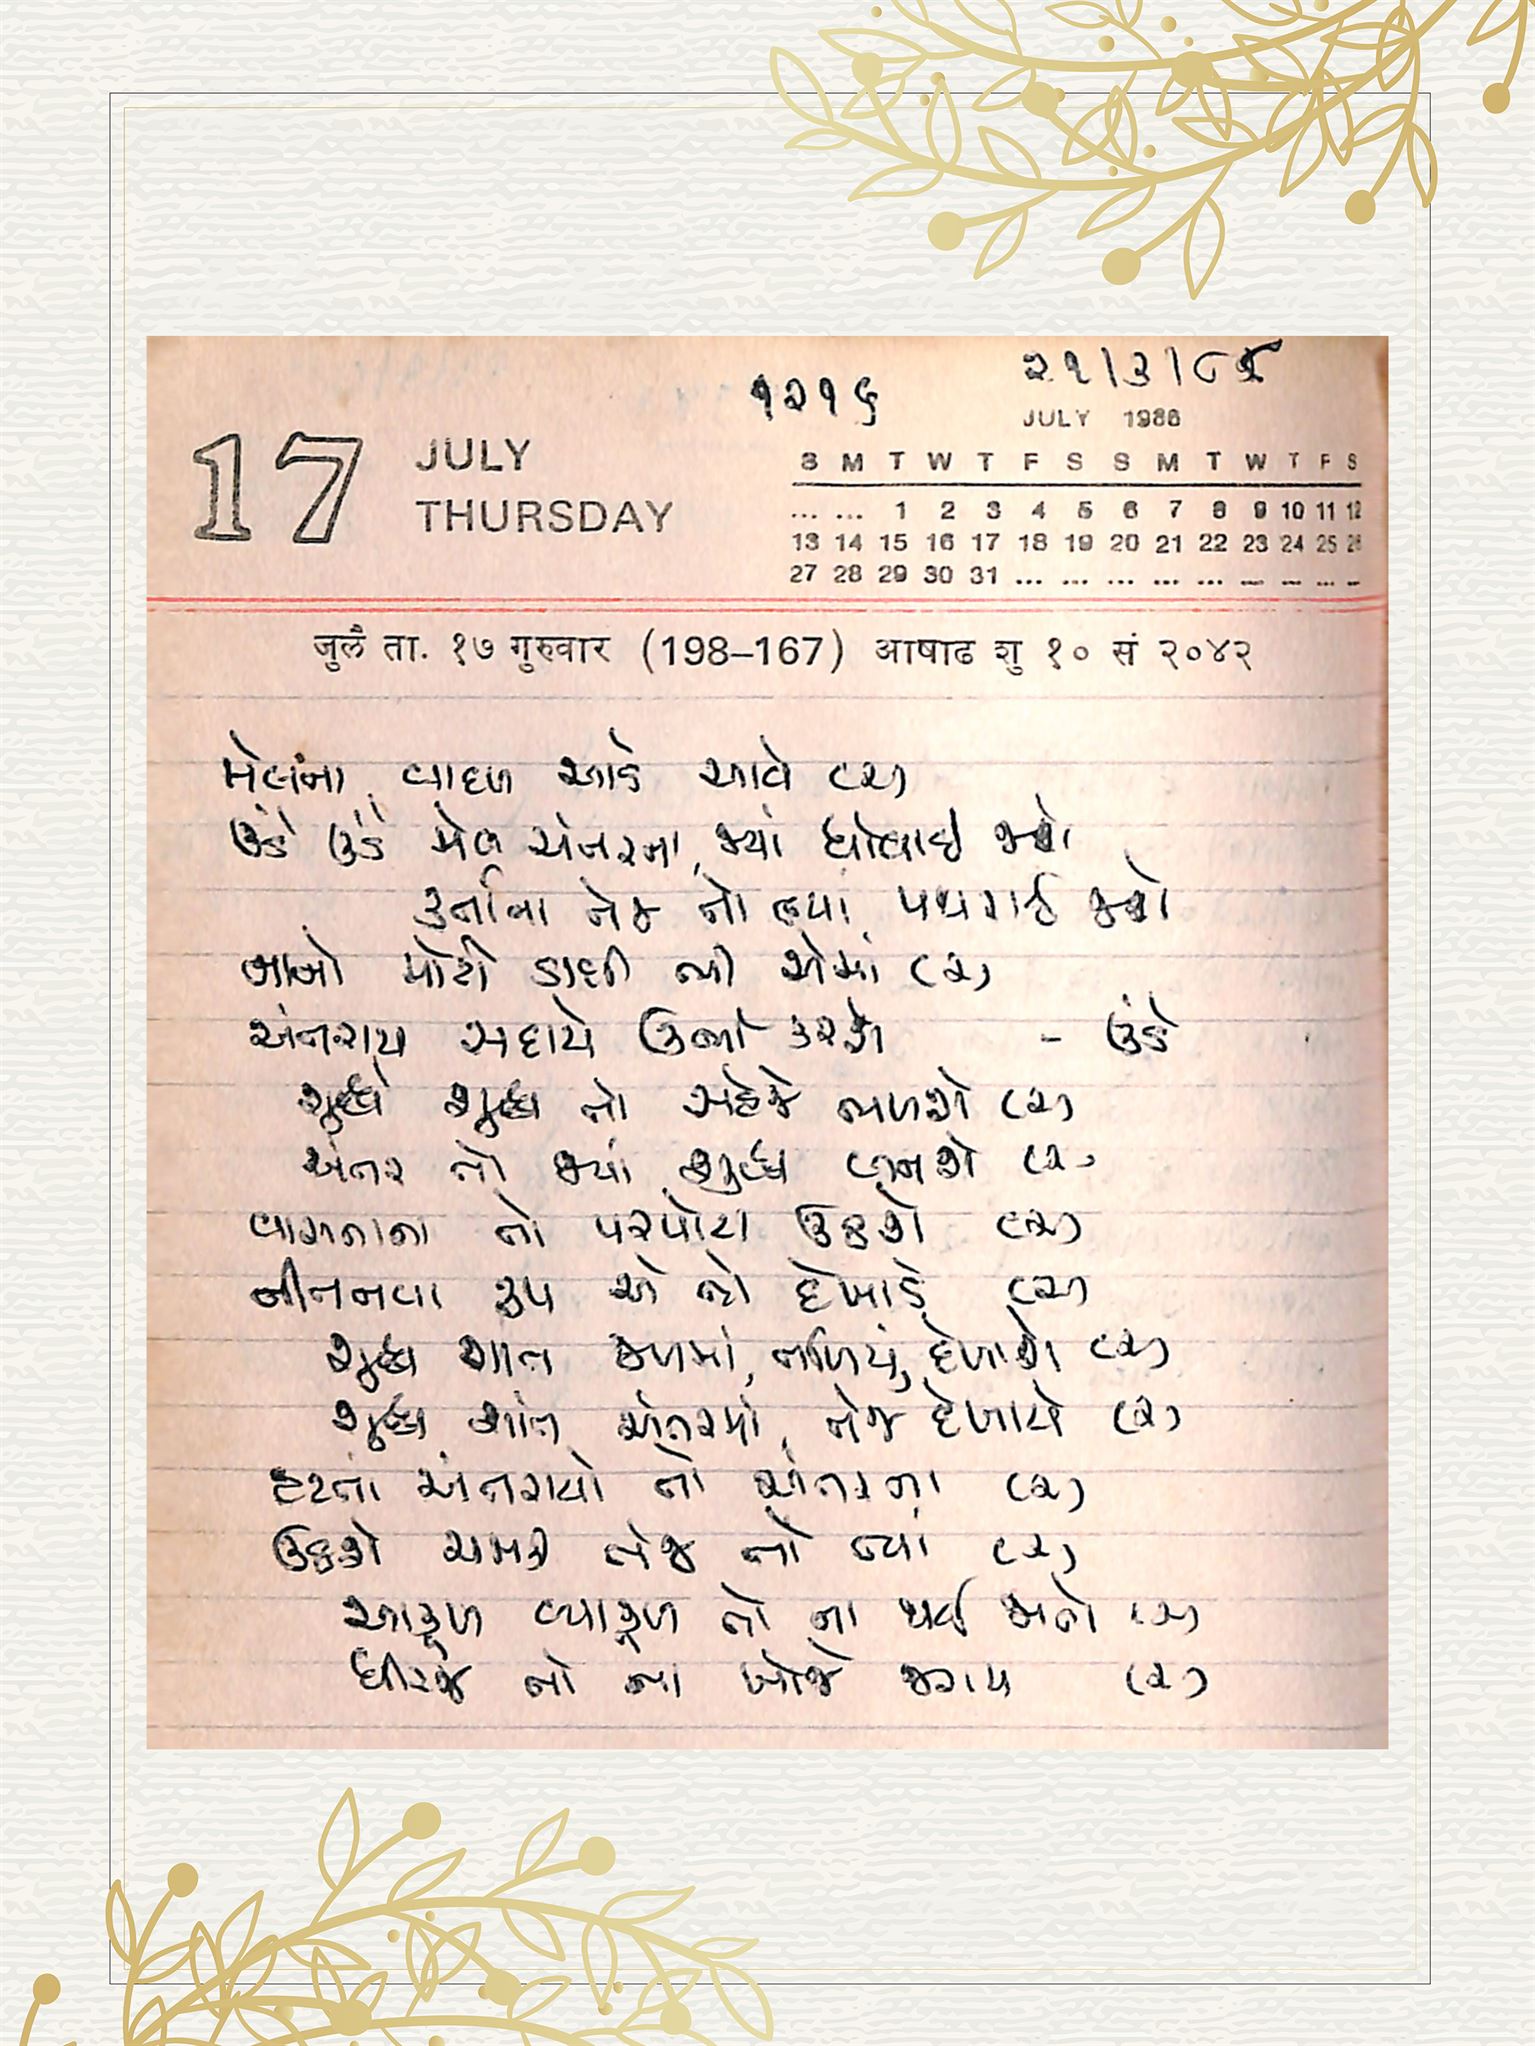 ૧૨૧૬ ૨૧/૩/૮૬
17 JULY THURSDAY
JULY 1986
S M T W T F S S M T W T F S
... ... 1 2 3 4 5 6 7 8 9 10 11 12
13 14 15 16 17 18 19 20 21 22 23 24 25 26
27 28 29 30 31 ... ... ... ... ... ... ... ... ...
जुलै ता. १७ गुरुवार (198–167) आषाढ शु १० सं २०४२
મેલના વાદળ આડે આવે (૨)
ઉંડે ઉંડે મેલ અંતરના, જ્યાં ધોવાઈ જશે
કર્તાના તેજ તો ત્યાં પથરાઈ જશે
ખાખો મોટી ડાઘી ભી એમાં (૨)
અંતરાય સદાયે ઉભો કરશે - ઉંડે
શુદ્ધે શુદ્ધ તો સહેજે ભળશે (૨)
અંતર તો જ્યાં શુદ્ધ બનશે (૨)
વાસનાના તો પરપોટા ઉઠશે (૨)
નીતનવા રૂપ એ તો દેખાડે (૨)
શુદ્ધ શાંત જળમાં, તળિયું દેખાશે (૨)
શુદ્ધ શાંત અંતરમાં, તેજ દેખાયે (૨)
હટતાં અંતરાયો તો અંતરના (૨)
ઉઠશે ચમકી તેજ તો ત્યાં (૨)
આકુળ વ્યાકુળ તો ના થઈ જાતો (૨)
ધીરજ તો ના ખોજે જરાય (૨)